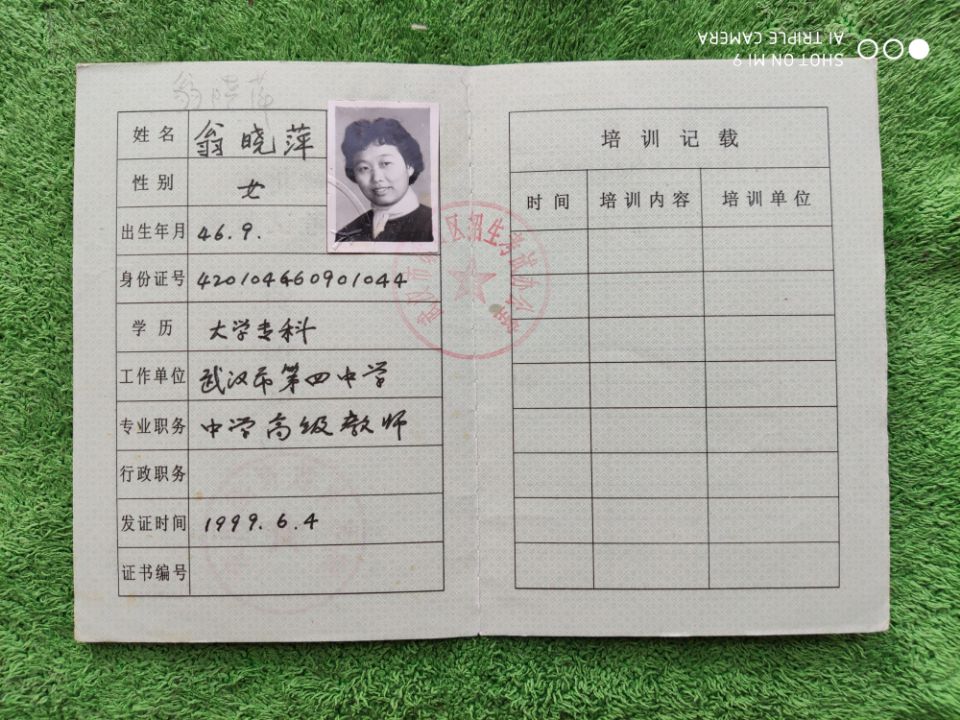 翁晓萍
姓名 翁晓萍
性别 女
出生年月 46.9.
身份证号 420104460901044
学历 大学专科
工作单位 武汉市第四中学
专业职务 中学高级教师
行政职务
发证时间 1999.6.4
证书编号
区招生考试办公室
培训记载
时间 培训内容 培训单位
SHOT ON MI 9
AI TRIPLE CAMERA